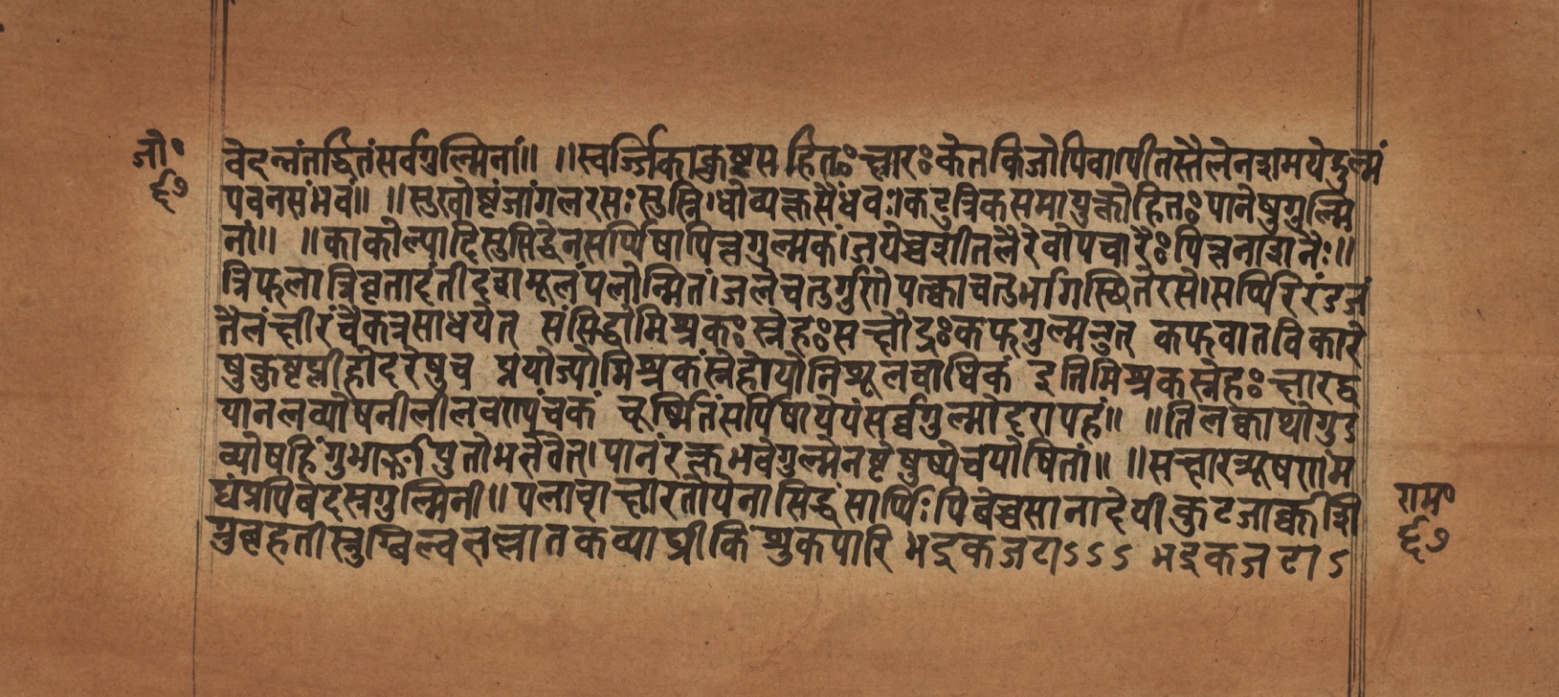 जो॰
६७
वेदन्नंतर्द्धितंसर्वगुल्मिनां॥ ॥स्वर्ज्जिकाकुष्टसहितःक्षारःकेतकिजोपिवा।पीतस्तैलेनशमयेद्गुल्मं
पवनसंभवं॥ ॥सुखोष्टंजांगलरसःसुस्निग्धोव्यक्तसैंधवः।कटुत्रिकसमायुक्तोहितःपानेषुगुल्मि
नां॥ ॥काकोल्पादिसुसिद्धेनसर्प्पिषापित्तगुल्मकं।जयेच्चशीतलैरेवोपचारैःपित्तनाशनैः॥
त्रिफलात्रिवृतादंतीदशमूलंपलोन्मितं।जलेचतुर्गुणेपत्काचतुर्भागस्थितेरसे।सर्प्पिरेरंडजं
तैलंक्षीरंचैकत्रसाधयेत् संसिद्धोमिश्रकःस्नेहःसक्षौद्रःकफगुल्मनुत् कफवातविकारे
षुकुष्टप्लीहोदरेषुच प्रयोज्योमिश्रकंस्नेहोयोनिशूलचाधिकं इतिमिश्रकस्नेहःक्षारद्व
यानलव्योषनीलीलवणपंचकं चूर्ण्मितिंसर्पिषापेयंसर्व्वगुल्मोदरापहं॥ ॥तिलक्वाथोगुड
व्योषहिंगुभार्ङ्गीयुतोभवेत्।पानंरक्तभवेगुल्मेनष्टेपुष्पेचयोषिता॥ ॥सक्षारत्र्यूषणंम
द्यंप्रपिवेदस्रगुल्मिनी॥पलाशक्षारतोयेनासिद्धंसर्प्पिःपिबेच्चसानादेयीकुटजार्क्कशि
ग्रुबृहतीस्नुग्बिल्वभल्लातकव्याघ्रीकिंशुकपारिभद्रकजटाऽऽऽ भद्रकजटाऽ
राम॰
६७